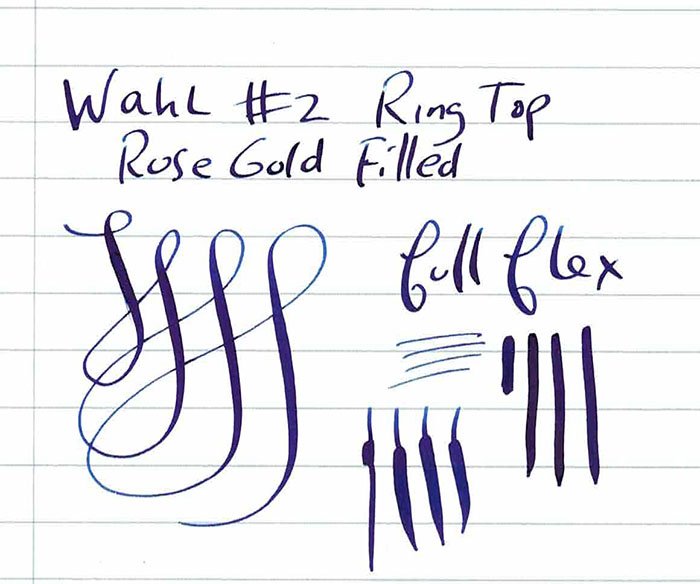 Wahl #2 Ring Top
Rose Gold Filled
full flex